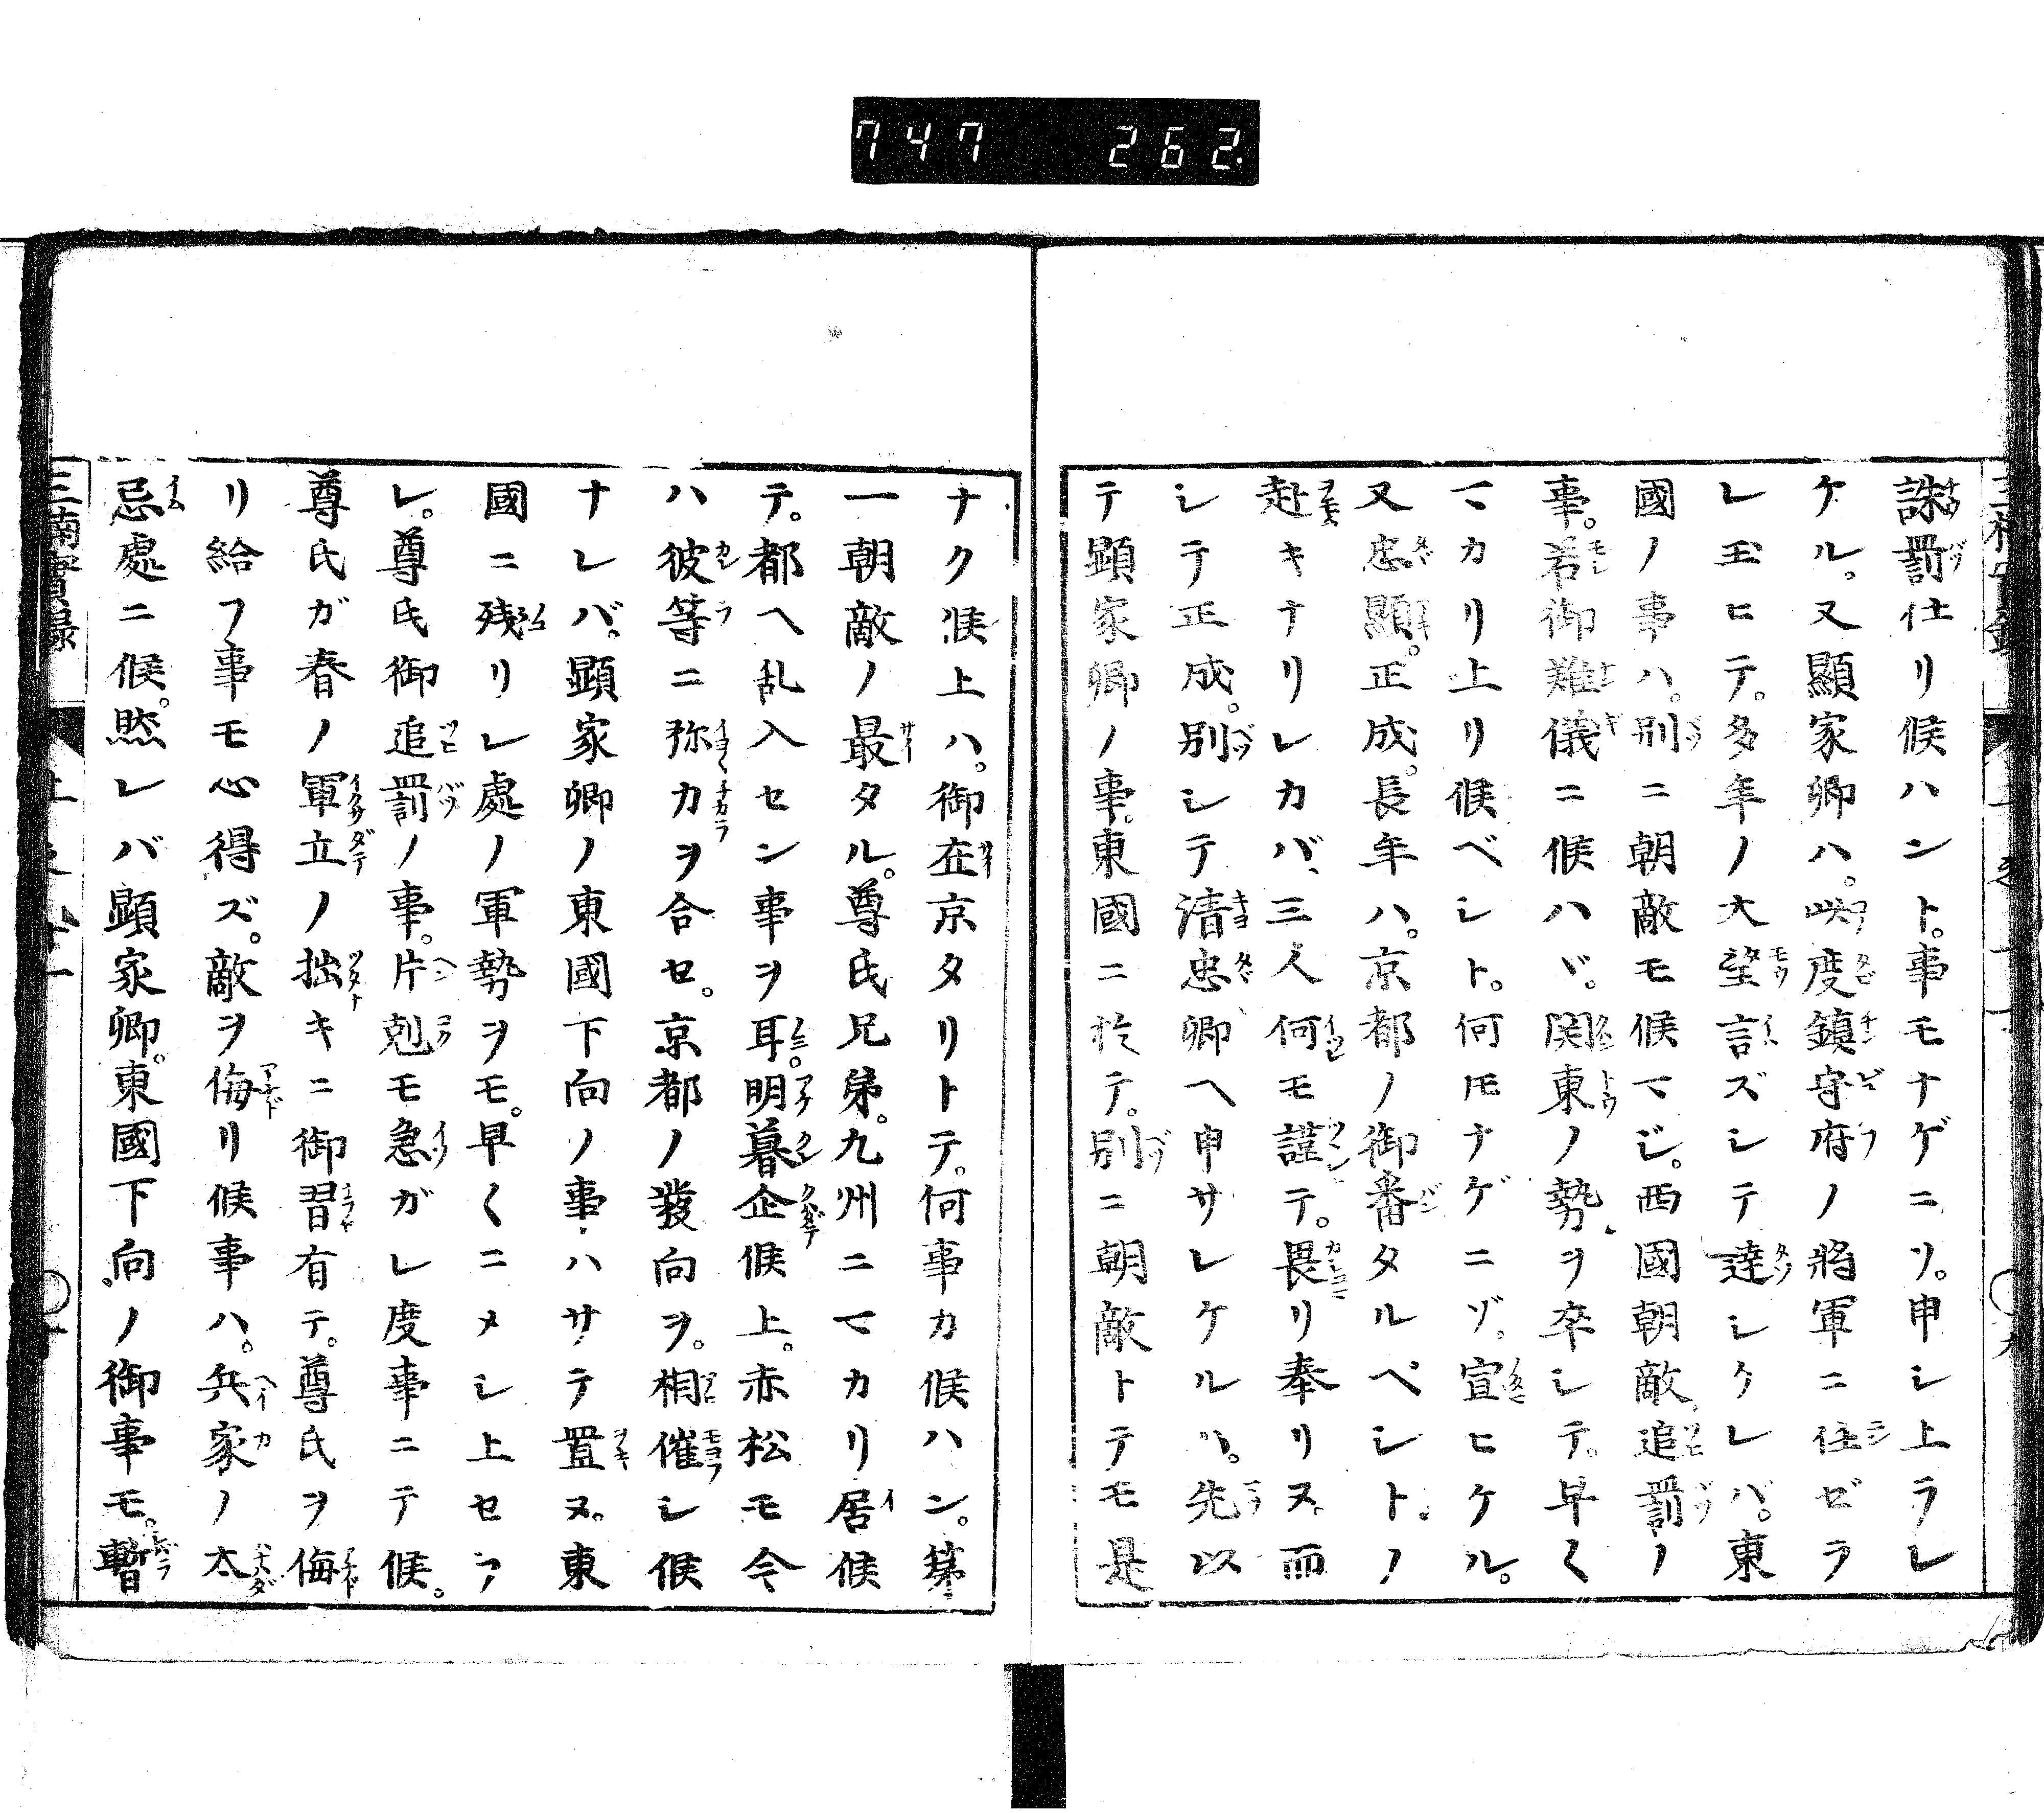 747 262.
誅罰仕リ候ハント。事モナゲニリ。申シ上ラレ
ケル。又顯家卿ハ。此度鎮守府ノ將軍ニ任ゼラ
レ玉ヒテ。多年ノ大望言ズシテ達シケレバ。東
國ノ事ハ。別ニ朝敵モ候マジ。西國朝敵追罰ノ
事。若御難儀ニ候ハヾ。関東ノ勢ヲ卒シテ。早く
マカリ上リ候ベシト。何モナゲニゾ。宣ヒケル。
又忠顯。正成。長年ハ。京都ノ御番タルベシト。ノ
赴キナリレカバ、三人何モ謹テ。畏リ奉リヌ。而
シテ正成。別シテ清忠卿ヘ申サレケルハ。先以
テ顕家卿ノ事。東國ニ於テ。別ニ朝敵トテモ是
ナク候上ハ。御在京タリトテ。何事カ候ハン。第
一朝敵ノ最タル。尊氏兄弟。九州ニマカリ居候
テ。都ヘ乱入セン事ヲ耳。明暮企候上。赤松モ今
ハ彼等ニ弥力ヲ合セ。京都ノ發向ヲ。相催シ候
ナレバ。顕家卿ノ東國下向ノ事ハサテ置ヌ。東
國ニ残リレ處ノ軍勢ヲモ。早くニメシ上セラ
レ。尊氏御追罰ノ事。片剋モ急ガレ度事ニテ候。
尊氏ガ春ノ軍立ノ拙キニ御習有テ。尊氏ヲ侮
リ給フ事モ心得ズ。敵ヲ侮リ候事ハ。兵家ノ太
忌處ニ候。然レバ顕家卿。東國下向ノ御事モ。暫
三楠實録